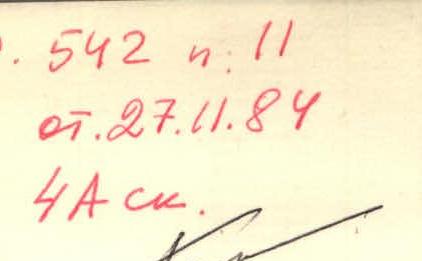 . 542 п. 11
от. 27.11.84
4А ск.